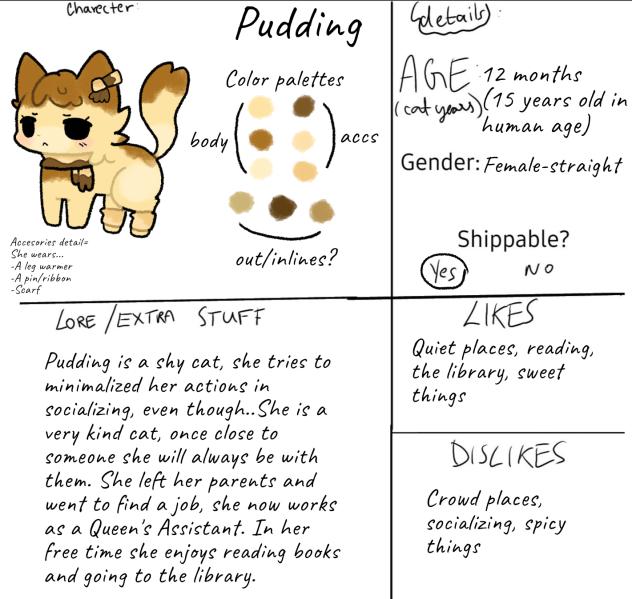 Charecter:
Pudding
Color palettes
body
accs
out/inlines?
Accesories detail=
She wears...
-A leg warmer
-A pin/ribbon
-Scarf
details:
AGE: 12 months
(cat years) (15 years old in
human age)
Gender: Female-straight
Shippable?
Yes NO
LORE/EXTRA STUFF
Pudding is a shy cat, she tries to
minimalized her actions in
socializing, even though..She is a
very kind cat, once close to
someone she will always be with
them. She left her parents and
went to find a job, she now works
as a Queen's Assistant. In her
free time she enjoys reading books
and going to the library.
LIKES
Quiet places, reading,
the library, sweet
things
DISLIKES
Crowd places,
socializing, spicy
things